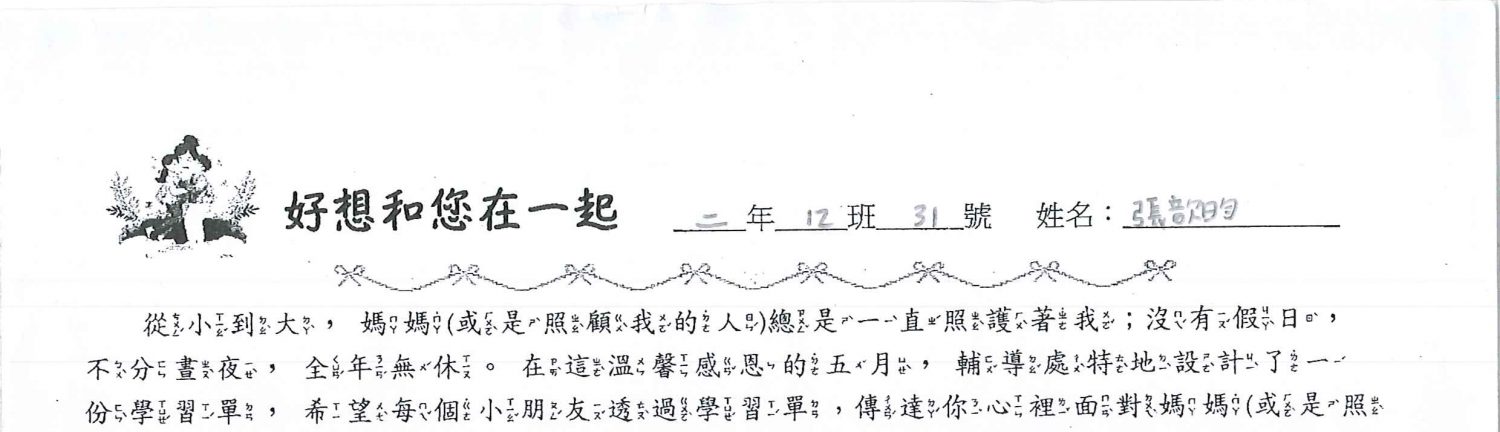 好想和您在一起 二年12班31號 姓名：張歆昀
從小到大，媽媽(或是照顧我的人)總是一直照護著我；沒有假日，
不分晝夜，全年無休。在這溫馨感恩的五月，輔導處特地設計了一
份學習單，希望每個小朋友透過學習單，傳達你心裡面對媽媽(或是照